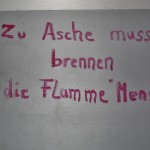 Zu Asche muss
brennen
die Flamme "Mens